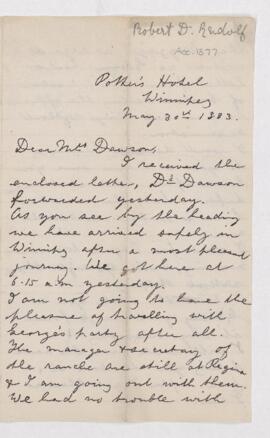 Robert D. Rudolf
Acc. 1377
Potter's Hotel
Winnipeg
May 30th 1883.
Dear Mrs Dawson,
I received the
enclosed letter, Dr Dawson
forwarded yesterday.
As you see by the heading
we have arrived safely in
Winnipeg after a most pleasant
journey. We got here at
6.15 a.m yesterday.
I am not going to have the
pleasure of travelling with
George's party after all.
The manager & secretary of
the ranche are still at Regina
& I am going out with them.
We had no trouble with